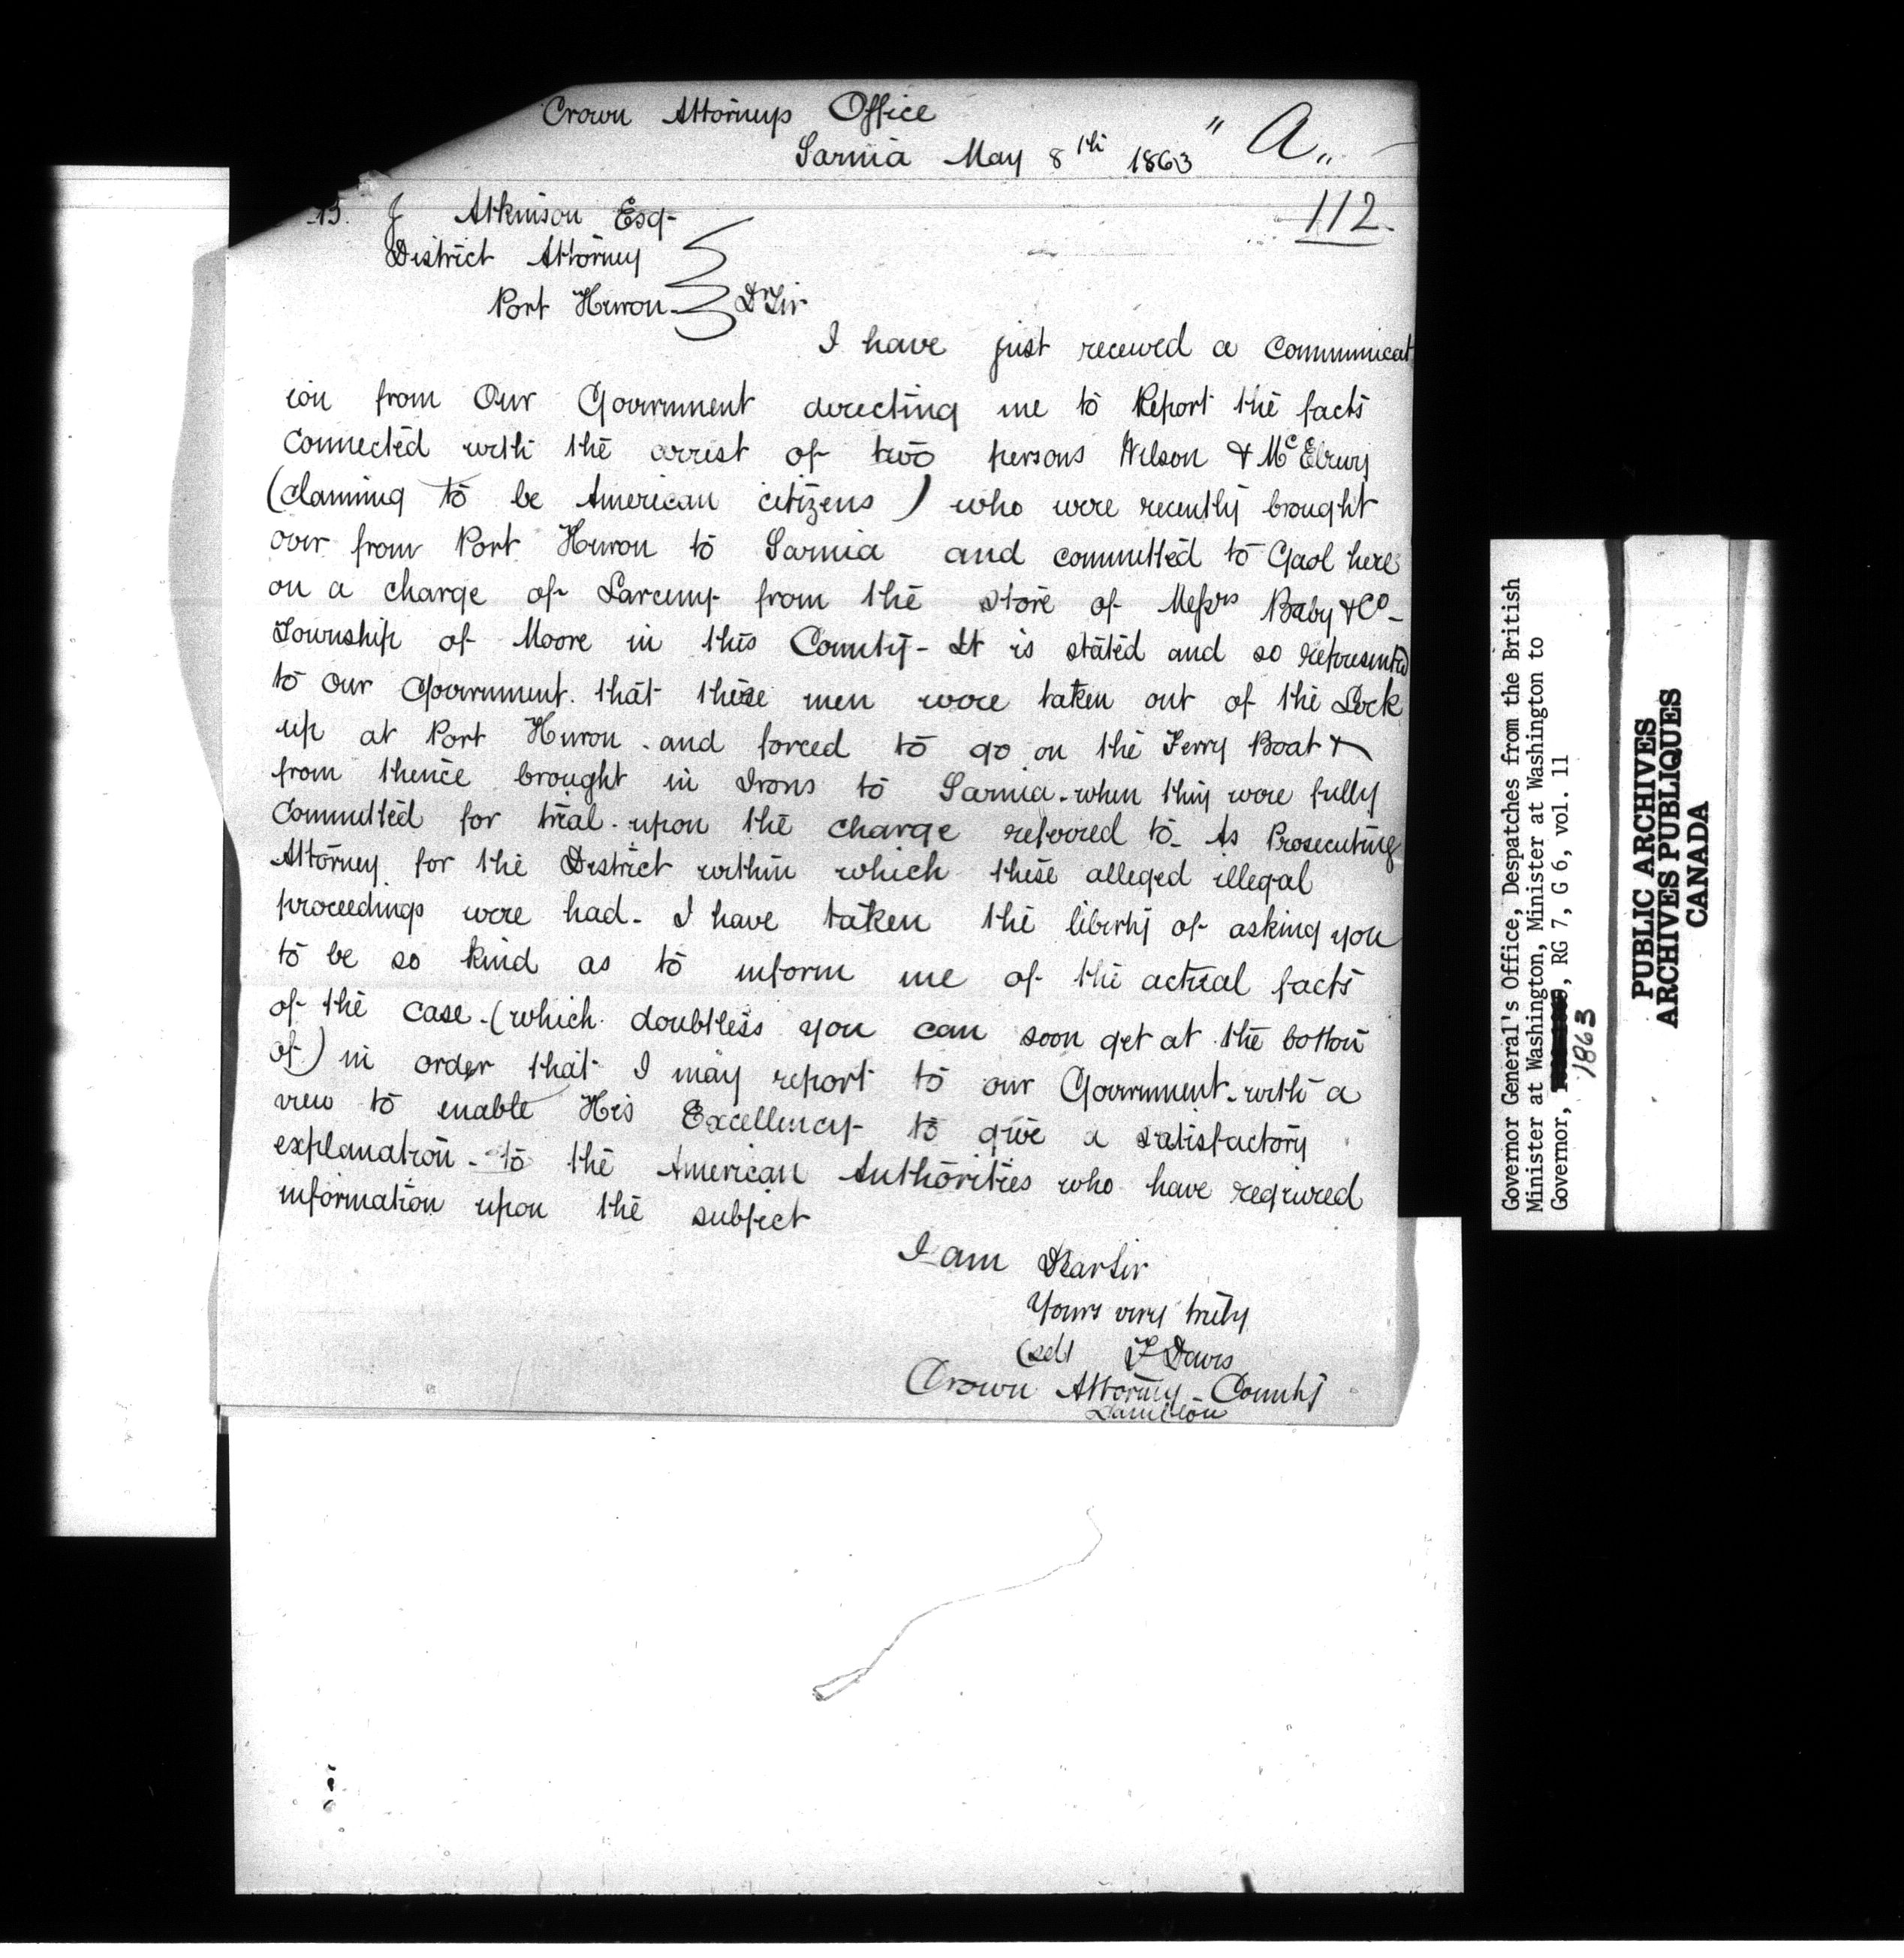 Crown Attorneys Office
Sarnia May 8th 1863
" A "
112.
J Atkinson Esq
District Attorney
Port Huron. Dr Sir
I have just received a Communicat
ion from Our Government directing me to Report the facts
Connected with the arrest of two persons Wilson & McElrury
(claiming to be American citizens) who were recently brought
over from Port Huron to Sarnia and committed to Gaol here
on a charge of Larceny from the store of Messrs Baby & Co -
Township of Moore in this County - It is stated and so represented
to our Government. that these men were taken out of the Lock
up at Port Huron . and forced to go on the Ferry Boat &
from thence brought in Irons to Sarnia - when they were fully
Committed for trial . upon the charge referred to - As Prosecuting
Attorney for the District within which these alleged illegal
proceedings were had - I have taken the liberty of asking you
to be so kind as to inform me of the actual facts
of the case - (which doubtless you can soon get at the bottom
of) in order that I may report to our Government - with a
view to enable His Excellency to give a satisfactory
explanation - to the American Authorities who have required
information upon the subject
I am Dear Sir
Yours very truly
(sd) T Davis
Crown Attorney - County
Lambton
Governor General's Office, Despatches from the British
Minister at Washington, Minister at Washington to
Governor, RG 7, G 6, vol. 11
1863
PUBLIC ARCHIVES
ARCHIVES PUBLIQUES
CANADA